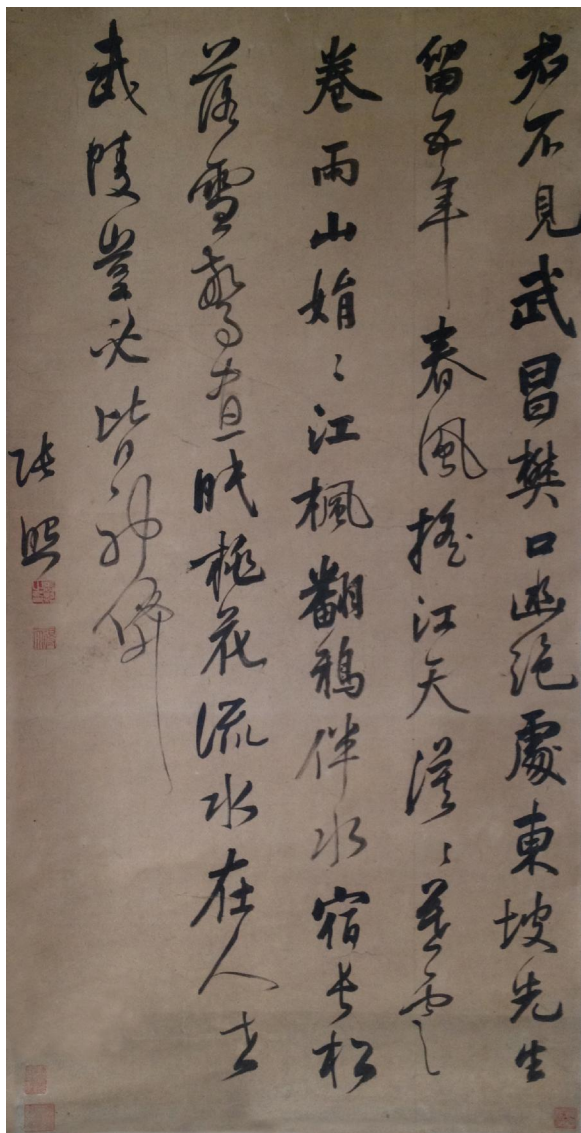 君不見武昌樊口幽絕處東坡先生
留五年春風搖江天漠〻暮雲
卷雨山娟〻江楓翻鴉伴水宿長松
落雪驚晝眠桃花流水在人世
武陵豈必皆神僊
張照